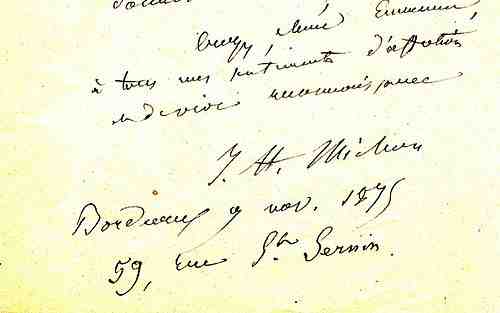 Croyez, chère Émilienne,
à tous mes sentiments d'affection
et de vive reconnaissance
J. H. Michon
Bordeaux 9 nov. 1875
59, rue St Sernin.